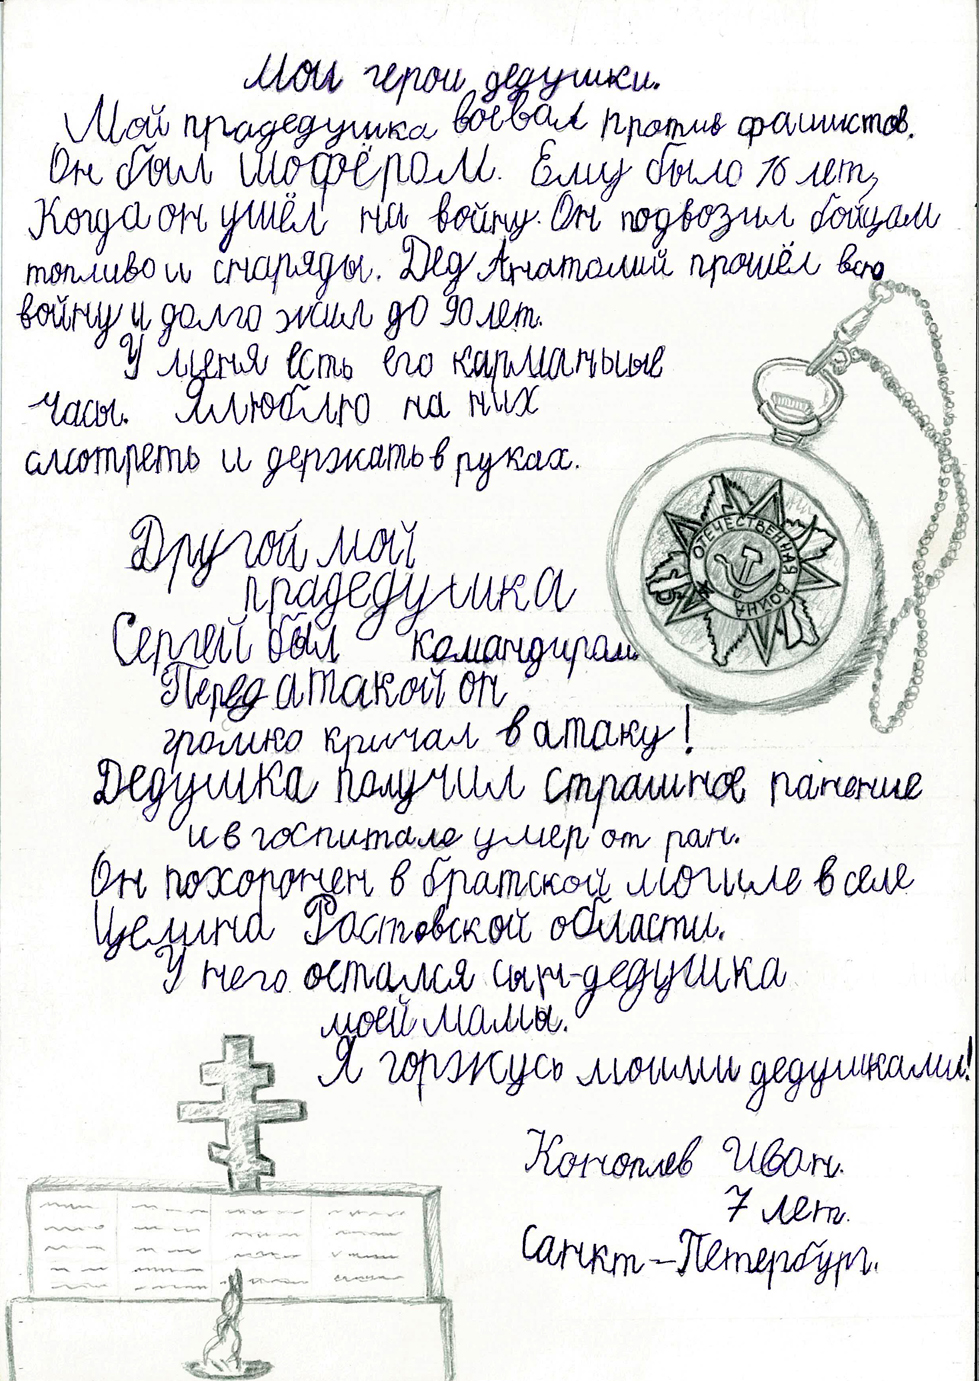 Мои герои дедушки.
Мой прадедушка воевал против фашистов.
Он был шофёром. Ему было 16 лет,
Когда он ушёл на войну. Он подвозил бойцам
топливо и снаряды. Дед Анатолий прошёл всю
войну и долго жил до 90 лет.
У меня есть его карманные
часы. Я люблю на них
смотреть и держать в руках.
ОТЕЧЕСТВЕННАЯ ВОЙНА
Другой мой
прадедушка
Сергей был командиром.
Перед атакой он
громко кричал в атаку!
Дедушка получил страшное ранение
и в госпитале умер от ран.
Он похоронен в братской могиле в селе
Целина Растовской области.
У него остался сын-дедушка
моей мамы.
Я горжусь моими дедушками!
Коноплев Иван.
7 лет.
Санкт-Петербург.